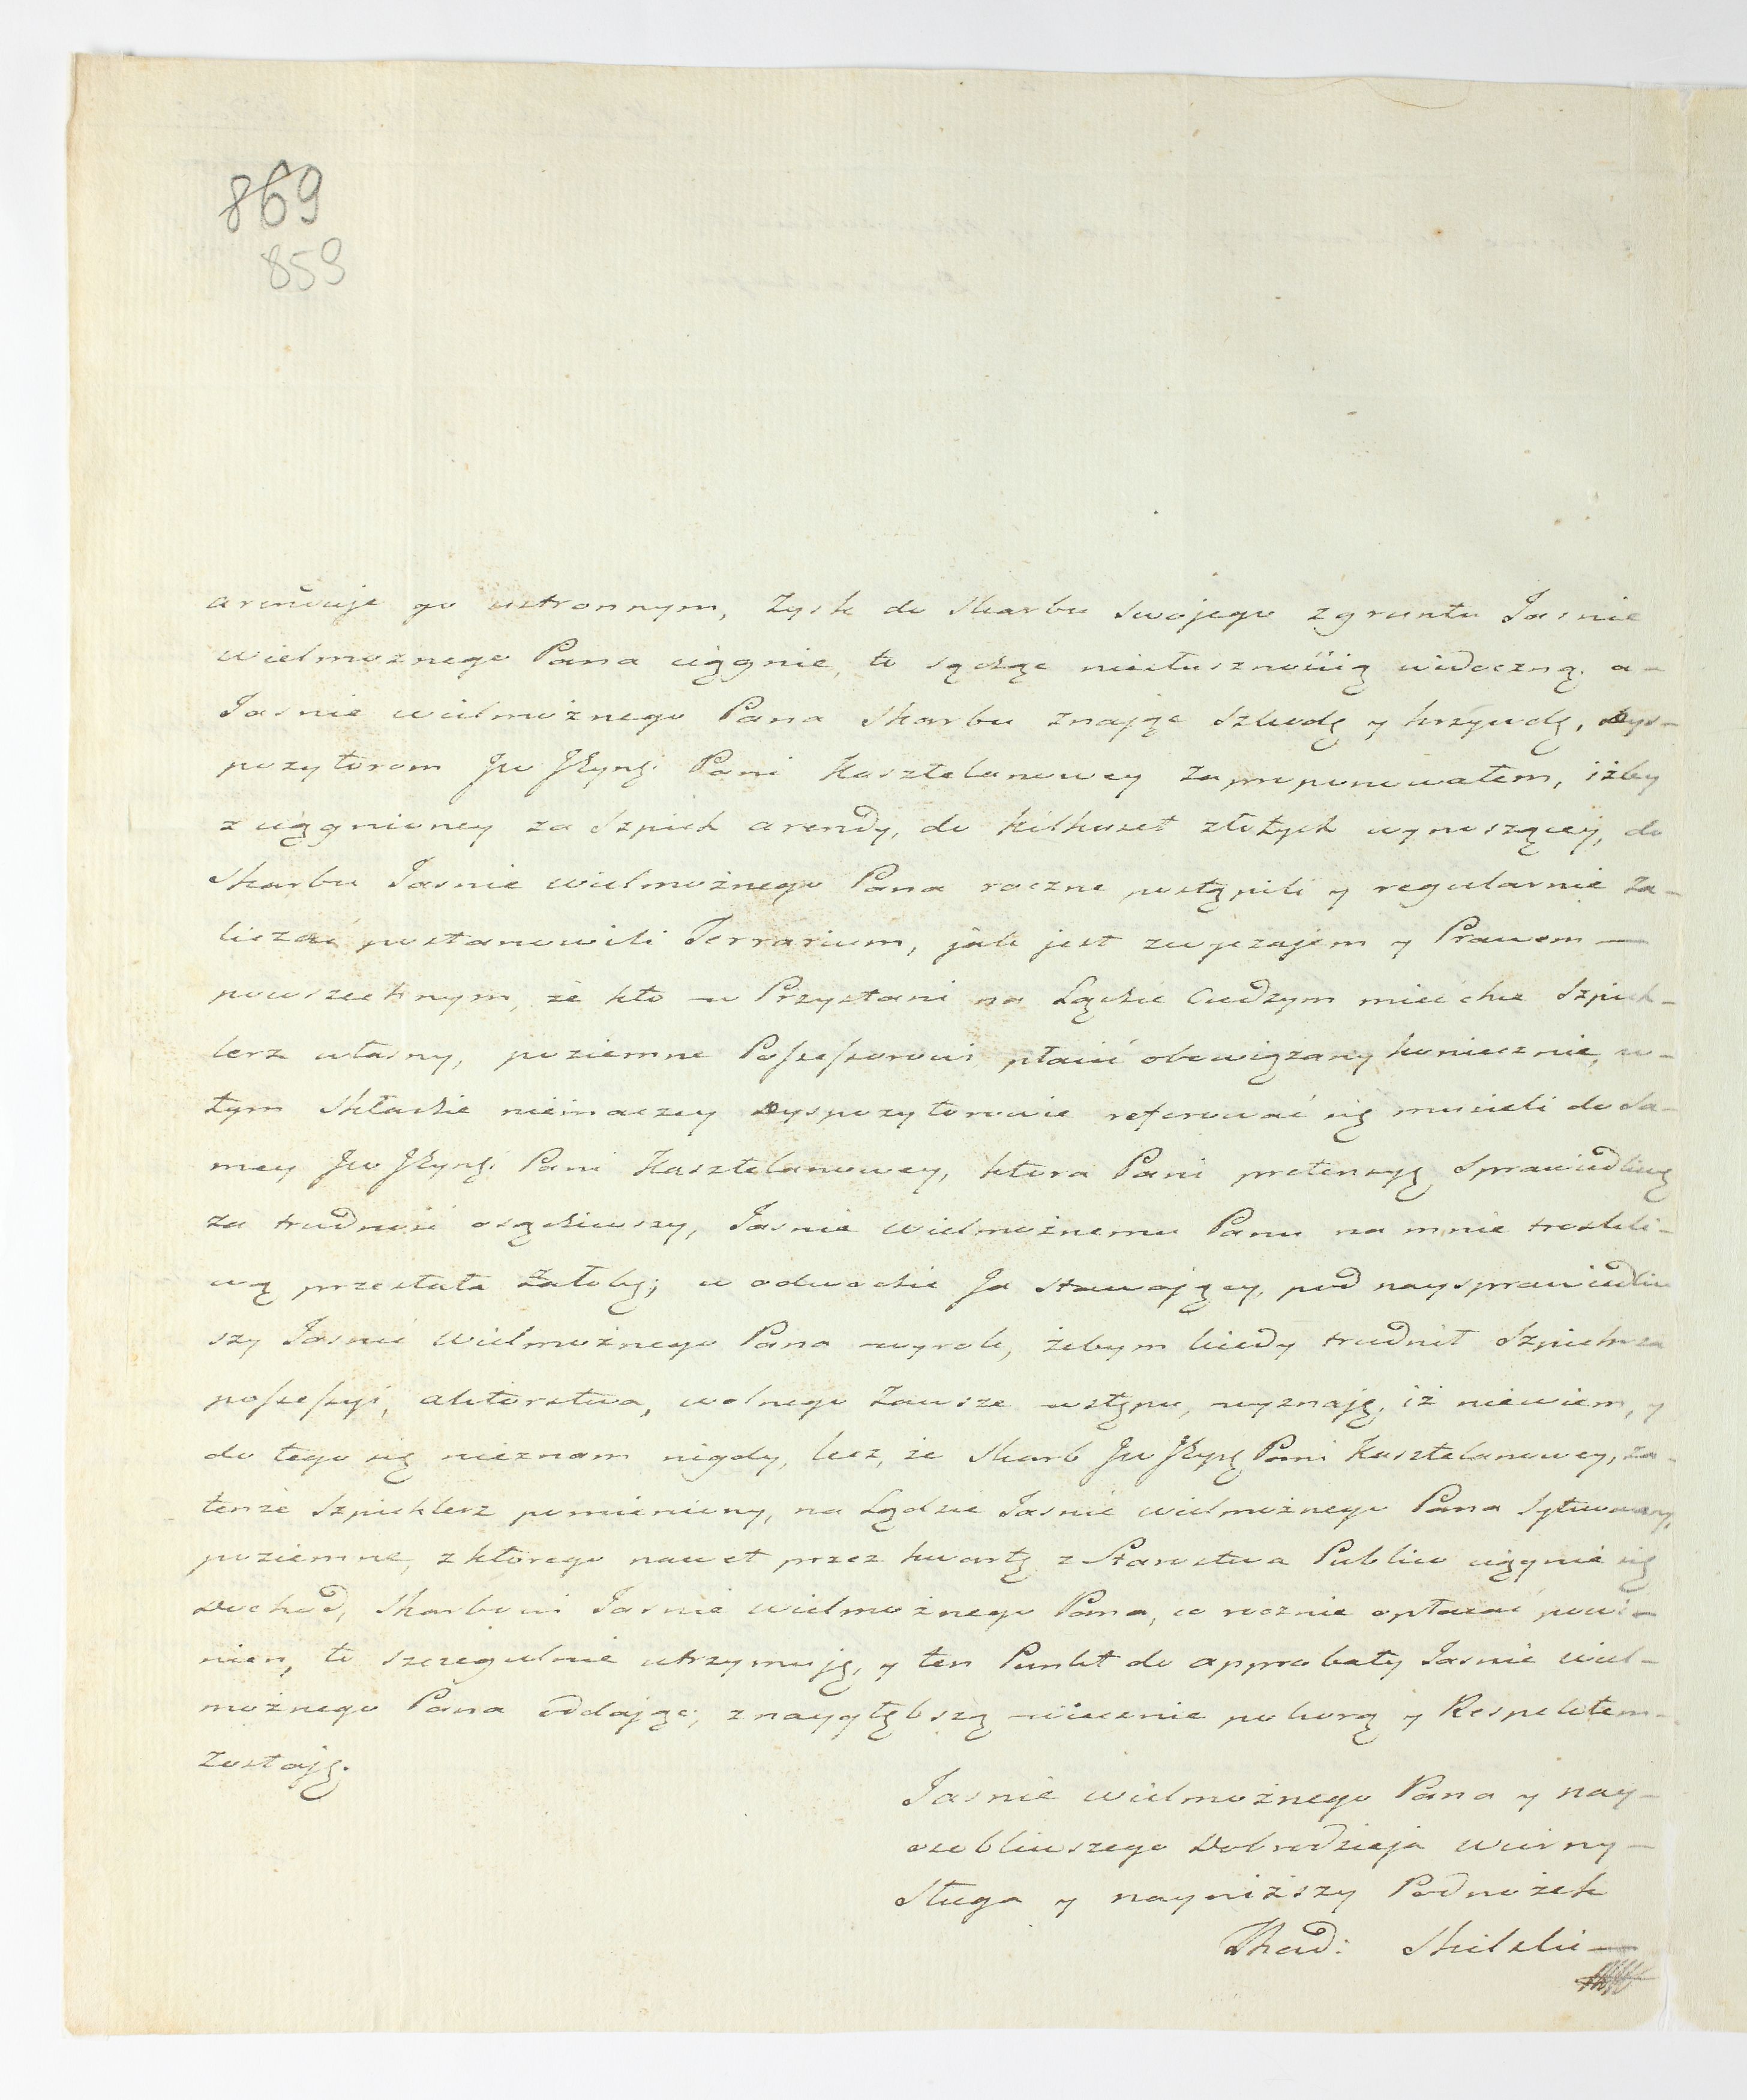 869
859
arenduje go ustronnym, Zysk do Skarbu swojego zgruntu Jasnie
wielmożnego Pana ciągnie, to sądzę niesłusznością widoczną. a-
Jasnie wielmożnego Pana Skarbu znając szkodę y krzywdę, Dys-
pozytorom Jw Pani Kasztelanowey zaproponowałem, iżby
z ciągnioney za Szpich arendy, do kilkuset złotych wynoszącey, do
Skarbu Jasnie wielmożnego Pana roczne postąpili y regularnie Za-
liczać postanowili Terrarium, jak jest zwyczajem y Prawem —
powszechnym, że kto w Przystani na Lądzie Cudzym mieć chce Szpich-
lerz własny, poziemne Possessorowi płacić obowiązany koniecznie, w-
tym składzie nieinaczey Dyspozytorowie referować się musieli do Sa-
mey Jw Pani Kasztelanowey, ktora Pani pretensyą Sprawiedliwą
za trudność osądziwszy, Jasnie Wielmożnemu Panu na mnie troskli-
wą przesłała Żałobę; w odwodzie Ja stawający, pod nayspra­wiedliw
szy Jasnie Wielmożnego Pana wyrok, żebym kiedy trudnił Szpichrza
possessyi, aktorstwa, wolnego Zawsze wstępu, wyznaję, iż niewiem, y
do tego się nieznam nigdy, lecz, że Skarb Jw Pani Kasztelanowey, za-
tenże Szpichlerz pomieniony, na Lądzie Jasnie wielmożnego Pana Sytuowany,
poziemne, z ktorego nawet przez kwartę z Starostwa Publico ciągnie się
Dochod, Skarbowi Jasnie wielmożnego Pana, co rocznie opłacać powi-
nien, to szczegulnie utrzymuję, y ten Punkt do approbaty Jasnie wiel-
możnego Pana oddając, z naygłębszą wiecznie pokorą y Respektem-
Zostaję.
Jasnie wielmożnego Pana y nay-
osobliwszego Dobrodzieja wierny-
Sługa y nayniższy Podnożek
Thad: Skilski —